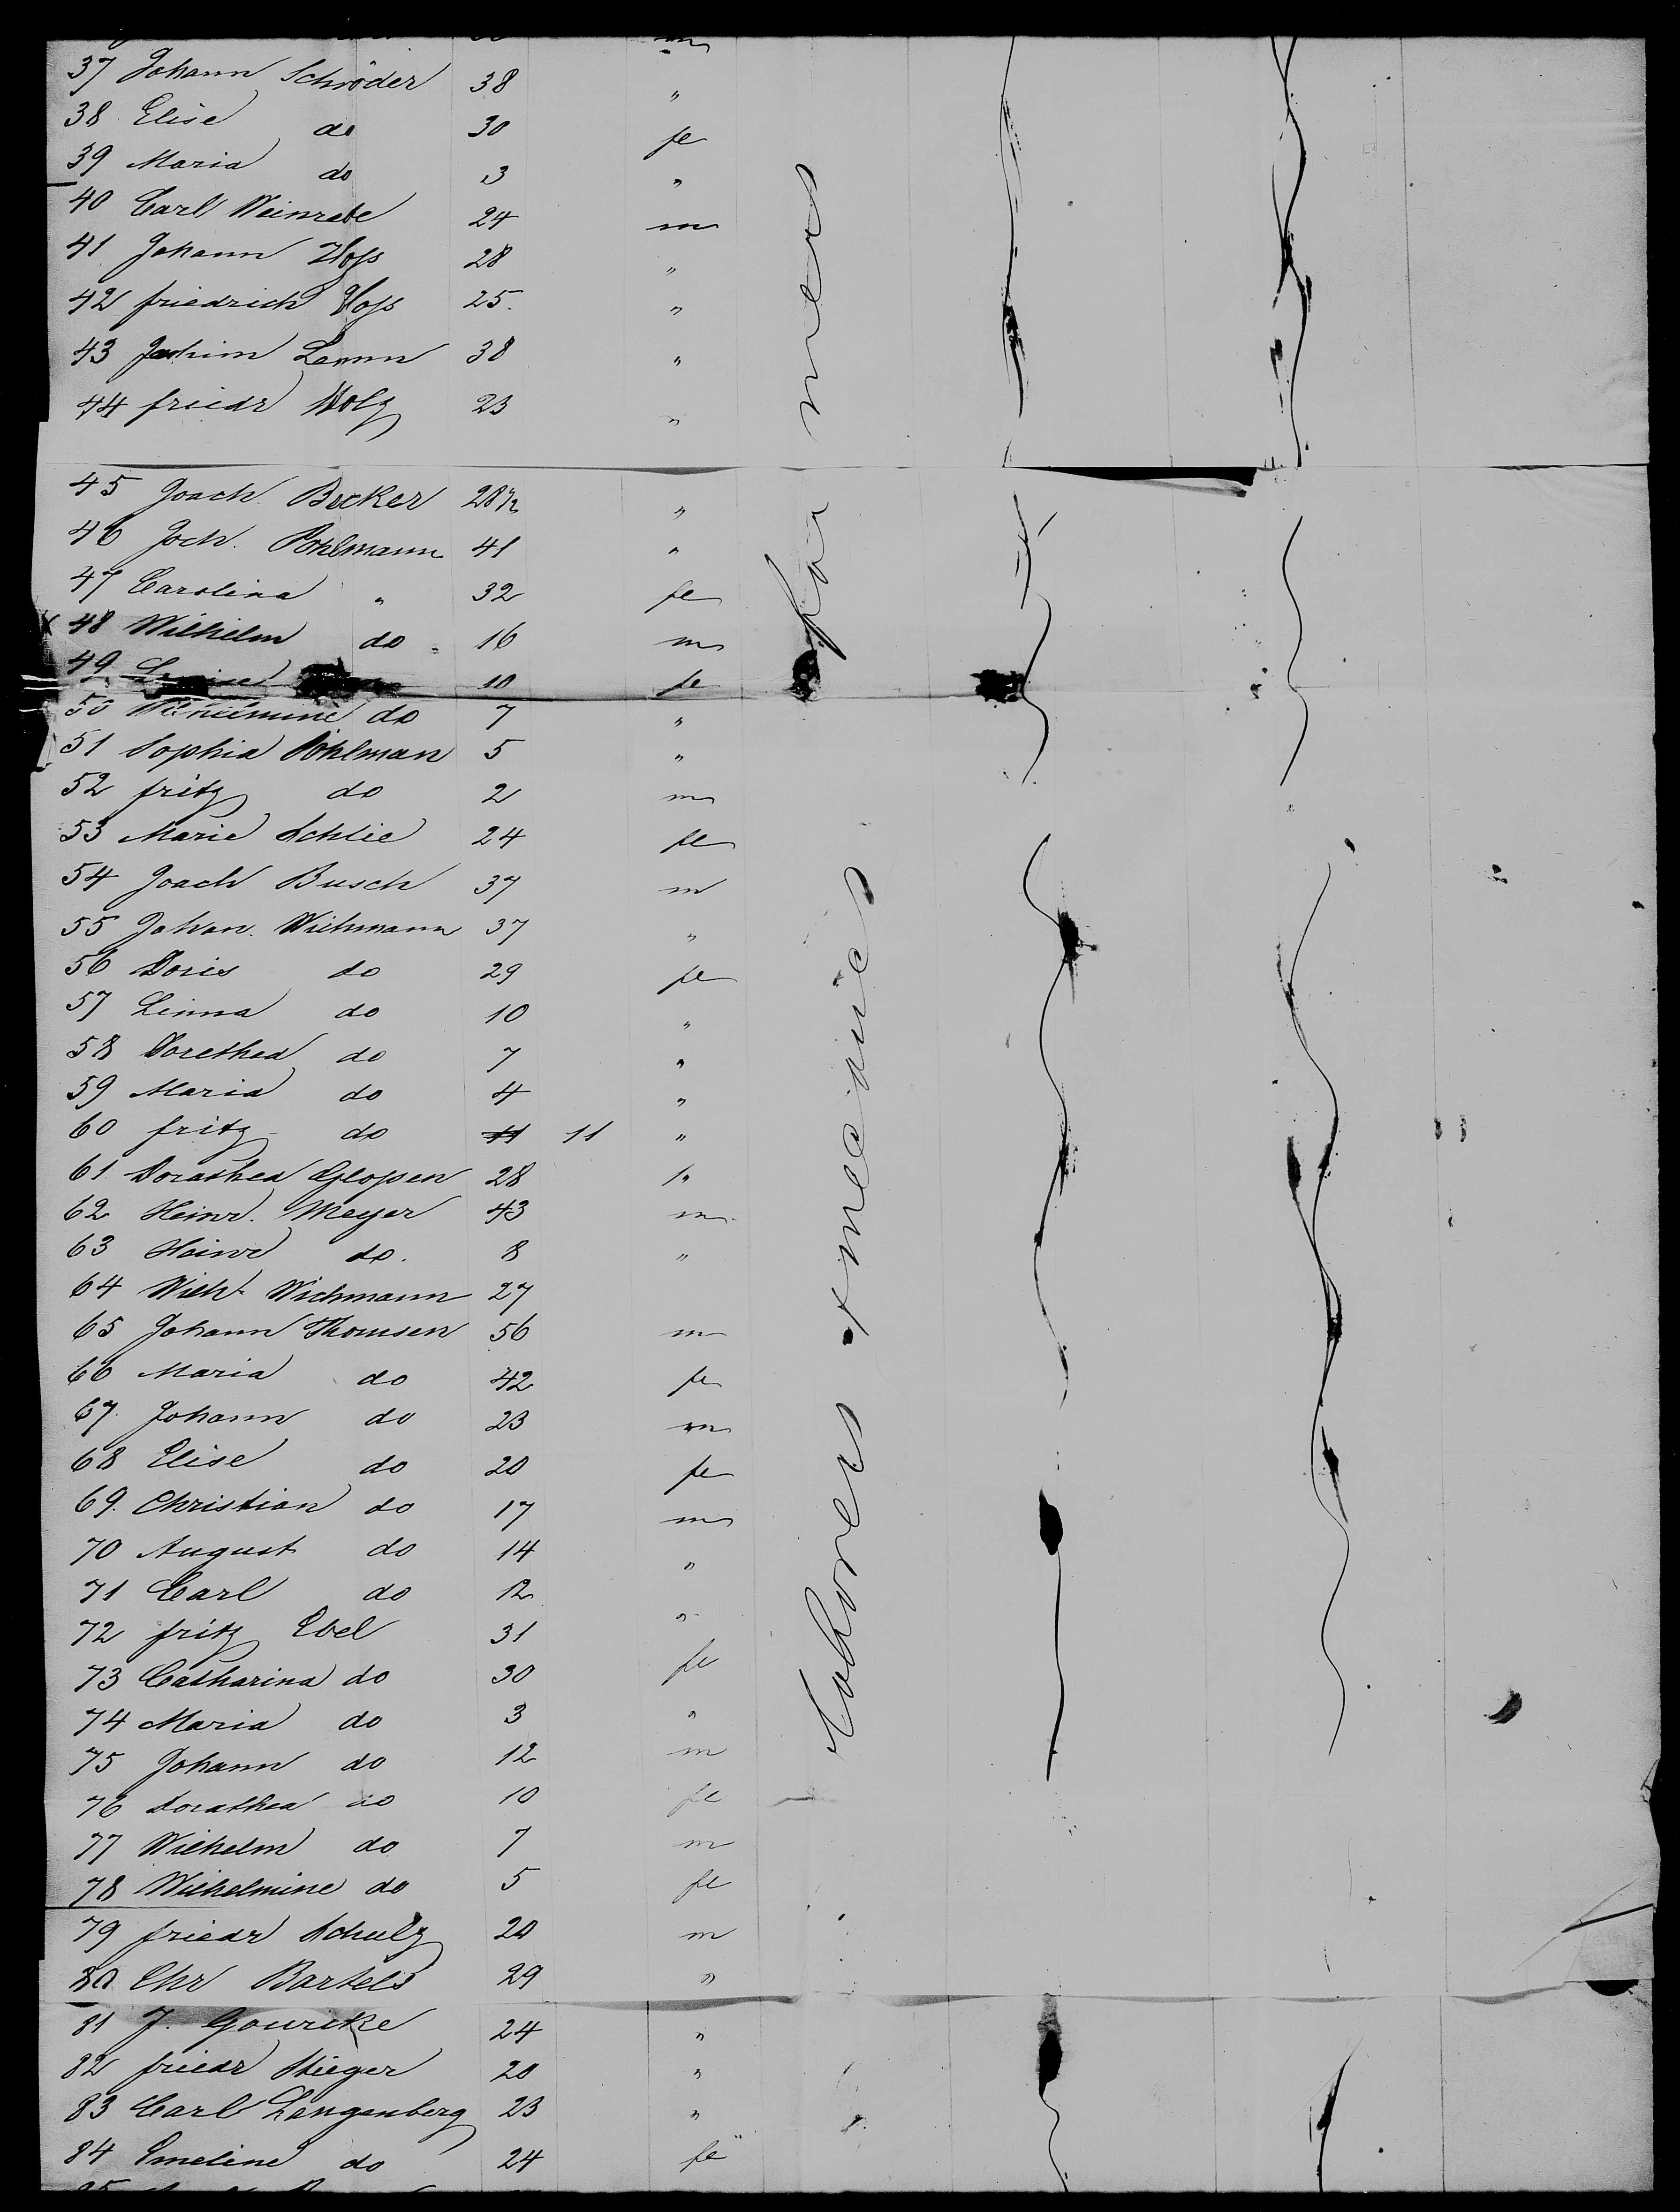 37 Johann Schröder 38 "
38 Elise do 30 fe
39 Maria do 3 "
40 Carl Weinrebe 24 m
41 Johann Voss 28 "
42 friedrich Voss 25. "
43 Jochim Lemm 38 "
44 friedr Wolz 23 "
45 Joach. Becker 28 1/2 "
46 Joch. Pöhlmann 41 "
47 Carolina " 32 fe
48 Wilhelm do 16 m
49 Louise 10 fe
50 Wilhelmine do 7 "
51 Sophia Pöhlman 5 "
52 fritz do 2 m
53 Marie Schlie 24 fe
54 Joach Busch 37 m
55 Johan. Wichmann 37 "
56 Doris do 29 fe
57 Linna do 10 "
58 Dorethea do 7 "
59 Maria do 4 "
60 fritz do 11 11 "
61 Dorathea Glossen 28 "
62 Heinr. Meyer 43 m
63 Heinr do. 8 "
64 Wilh. Wichmann 27
65 Johann Thomsen 56 m
66 Maria do 42 fe
67. Johann do 23 m
68 Elise do 20 fe
69. Christian do 17 m
70 August do 14 "
71 Carl do 12 "
72 fritz Ebel 31
73 Catharina do 30 fe
74 Maria do 3 "
75 Johann do 12 m
76 Dorathea do 10 fe
77 Wilhelm do 7 m
78 Wilhelmine do 5 fe
79 friedr Schulz 20 m
80 Chr Bartels 29 "
81 J. Gouricke 24 "
82 friedr Stieger 20 "
83 Carl Langenberg 23 "
84 Emeline do 24 fe
farmers
Laborers + mecanics